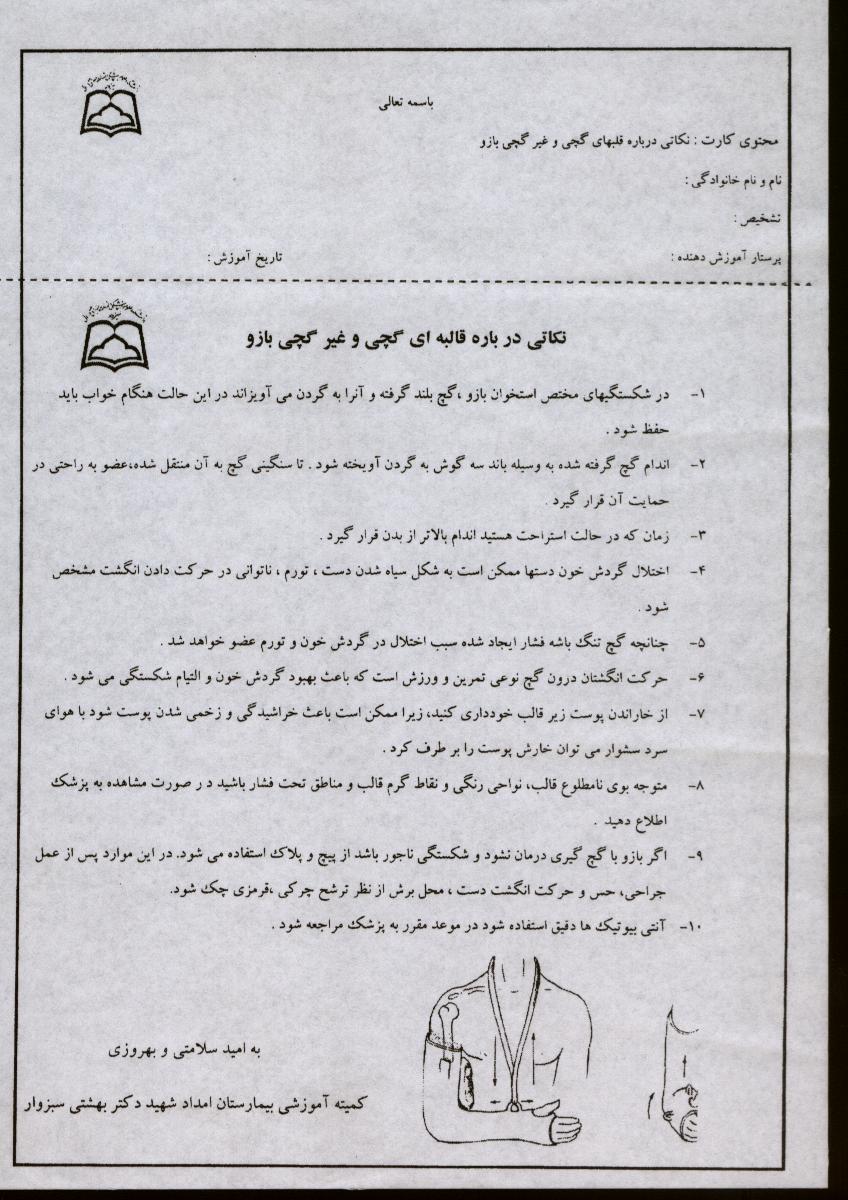 باسمه تعالی
محتوی کارت : نکاتی درباره قلبهای گچی و غیر گچی بازو
نام و نام خانوادگی :
تشخیص :
پرستار آموزش دهنده : تاریخ آموزش :
نکاتی در باره قالبه ای گچی و غیر گچی بازو
۱- در شکستگیهای مختص استخوان بازو ،گچ بلند گرفته و آنرا به گردن می آویزاند در این حالت هنگام خواب باید
حفظ شود .
۲- اندام گچ گرفته شده به وسیله باند سه گوش به گردن آویخته شود . تا سنگینی گچ به آن منتقل شده،عضو به راحتی در
حمایت آن قرار گیرد .
۳- زمان که در حالت استراحت هستید اندام بالاتر از بدن قرار گیرد .
۴- اختلال گردش خون دستها ممکن است به شکل سیاه شدن دست ، تورم ، ناتوانی در حرکت دادن انگشت مشخص
شود .
۵- چنانچه گچ تنگ باشه فشار ایجاد شده سبب اختلال در گردش خون و تورم عضو خواهد شد .
۶- حرکت انگشتان درون گچ نوعی تمرین و ورزش است که باعث بهبود گردش خون و التیام شکستگی می شود .
۷- از خاراندن پوست زیر قالب خودداری کنید، زیرا ممکن است باعث خراشیدگی و زخمی شدن پوست شود با هوای
سرد سشوار می توان خارش پوست را بر طرف کرد .
۸- متوجه بوی نامطلوع قالب، نواحی رنگی و نقاط گرم قالب و مناطق تحت فشار باشید د ر صورت مشاهده به پزشک
اطلاع دهید .
۹- اگر بازو با گچ گیری درمان نشود و شکستگی ناجور باشد از پیچ و پلاک استفاده می شود. در این موارد پس از عمل
جراحی، حس و حرکت انگشت دست ، محل برش از نظر ترشح چرکی ،قرمزی چک شود.
۱۰- آنتی بیوتیک ها دقیق استفاده شود در موعد مقرر به پزشک مراجعه شود .
به امید سلامتی و بهروزی
کمیته آموزشی بیمارستان امداد شهید دکتر بهشتی سبزوار